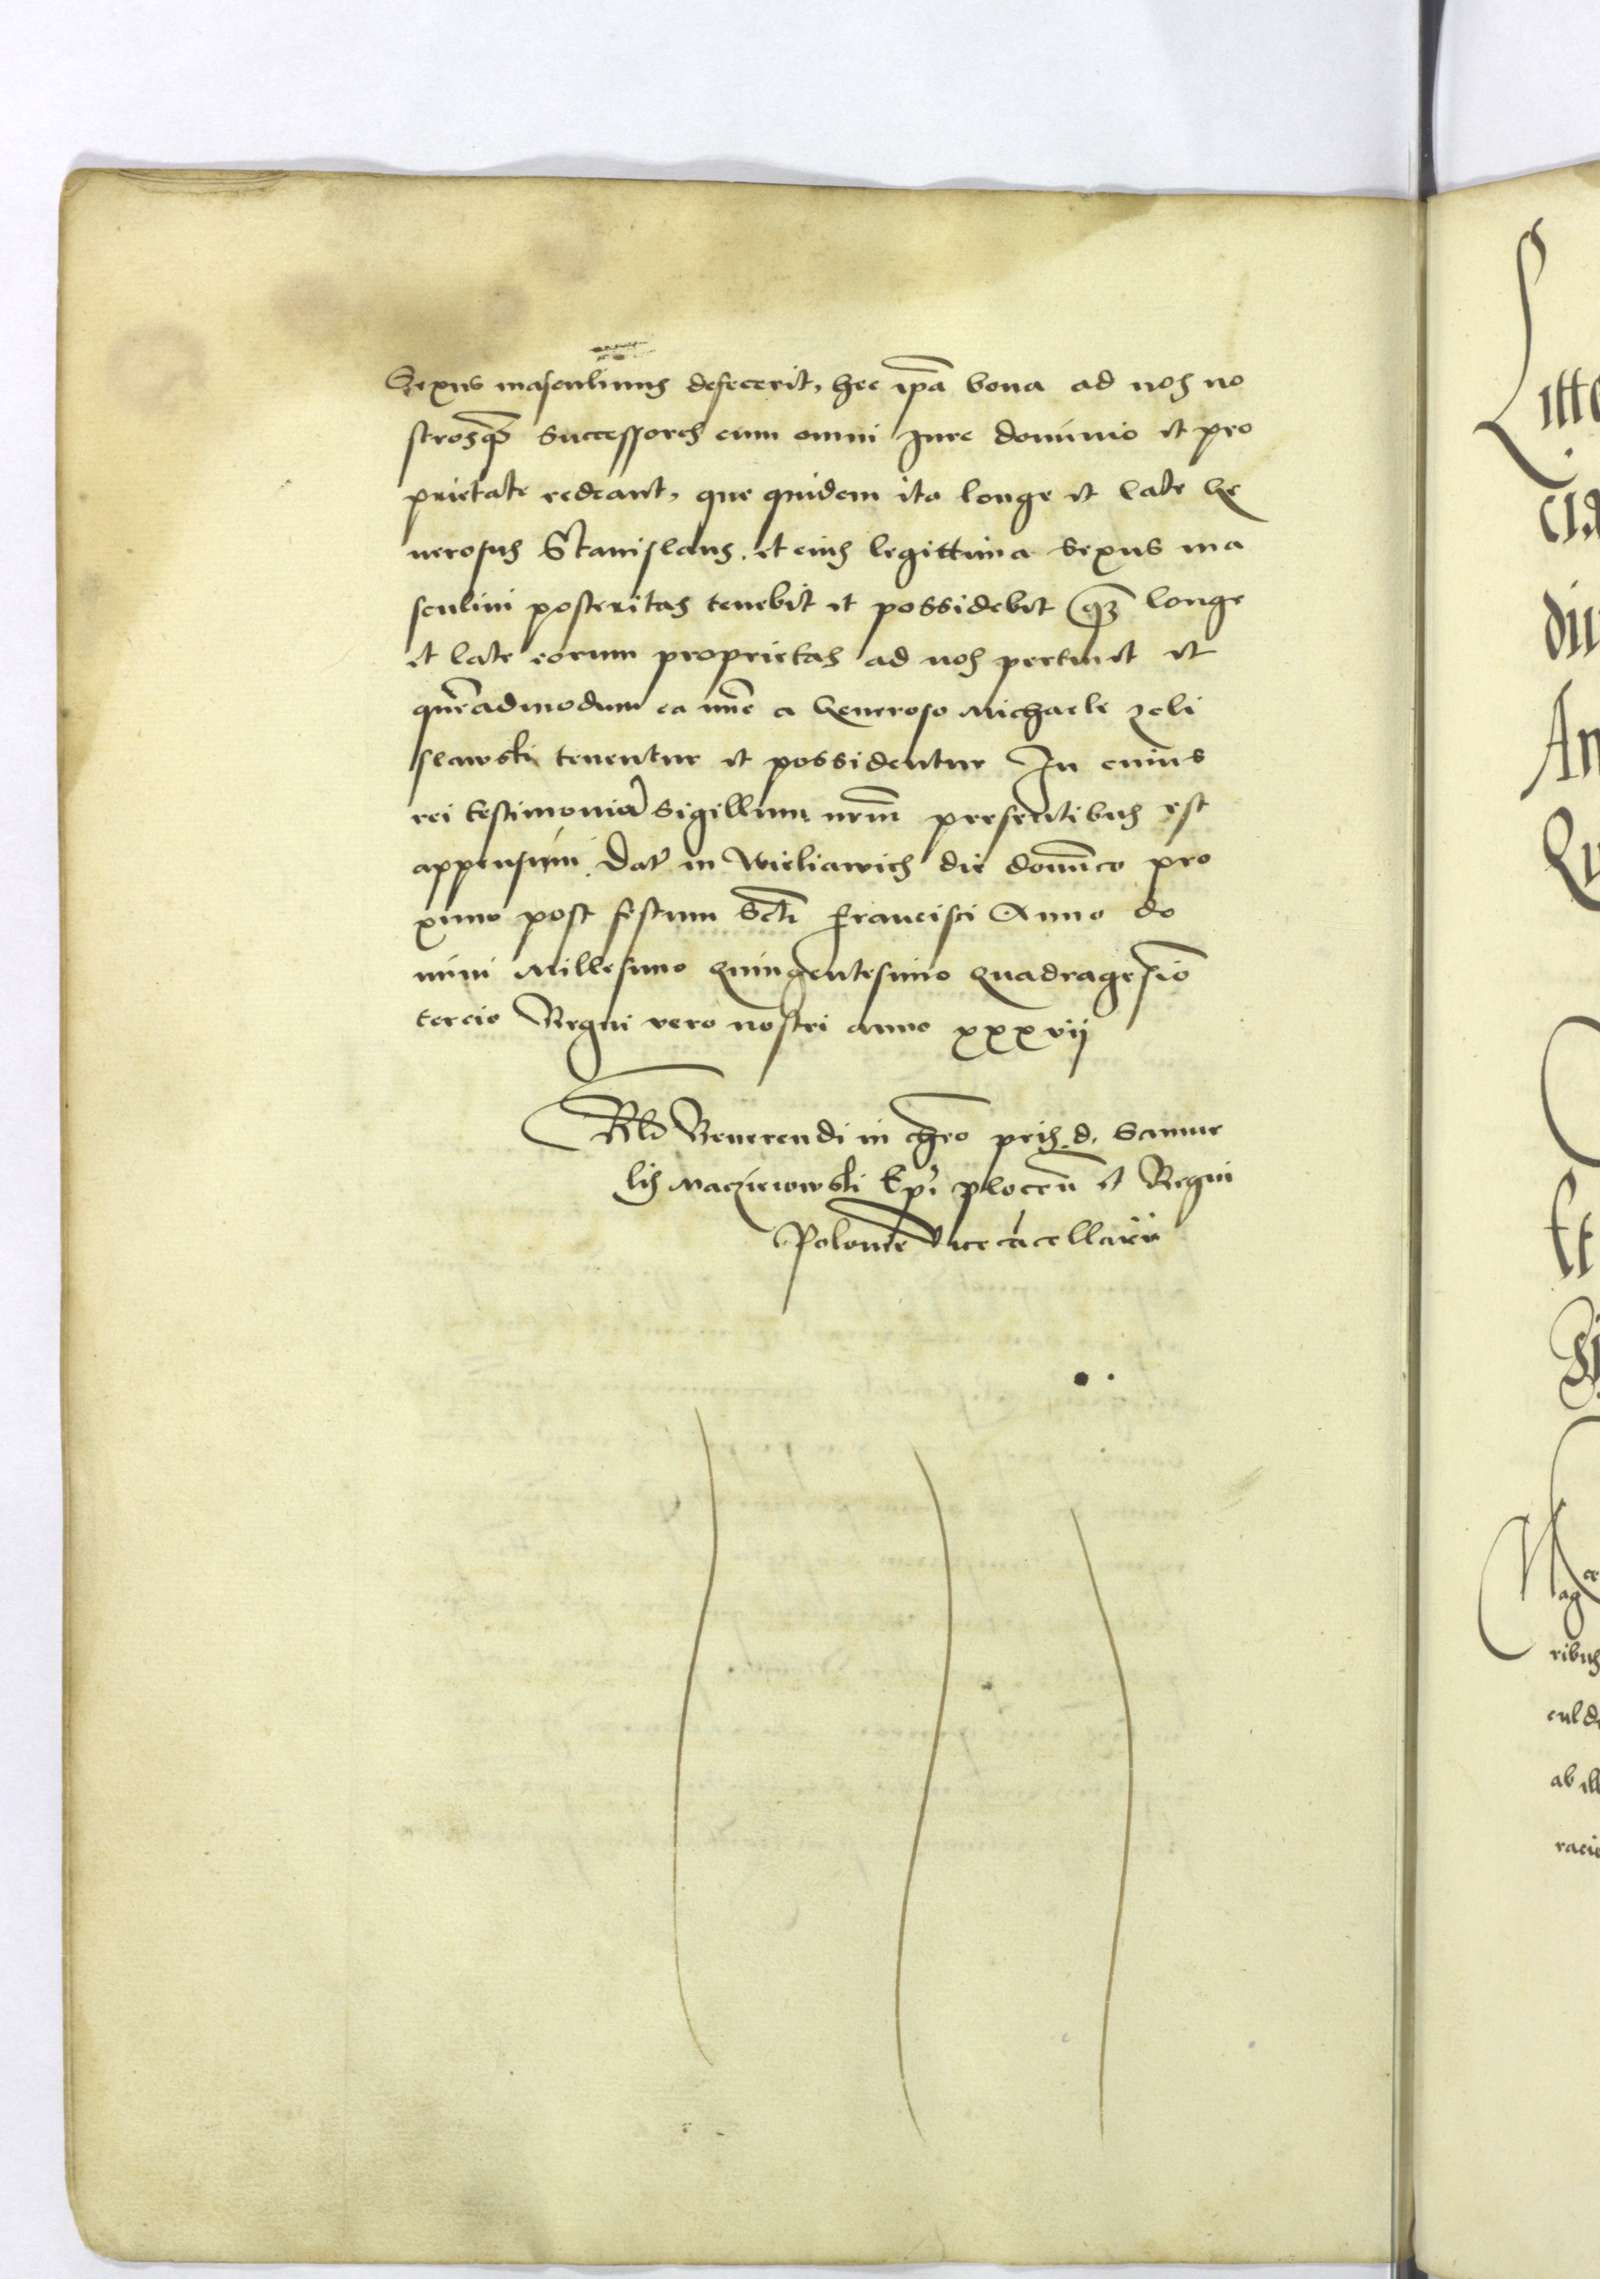 Sexus masculinus defecerit, hec ipa bona ad nos no
strosq successores cum omni Jure dominio et pro
prietate redeant, que quidem ita longe et late Ge
nerosus Stanislaus. et eius legittima sexus ma
sculini posteritas tenebit et possidebit longe
et late eorum proprietas ad nos pertinet et
quēadmodum ea nūc a Generoso Michaele Zeli
slawski tenentur et possidentur In cuius
rei testimoniū Sigillum nrm presentibus est
appensum. Dat in die domīco pro
ximo post festum Scti Francisci Anno do
mini Millesimo Quingentesimo Quadragesīo
tercio Regni vero nostri anno xxxvij
Rlō Reverendi in chro pris d. Samue
lis Macziewski Epi plocen et Regni
Polonie Vicecācellarii
Litt
An
Et
Mag
ribus
ab ill
racio